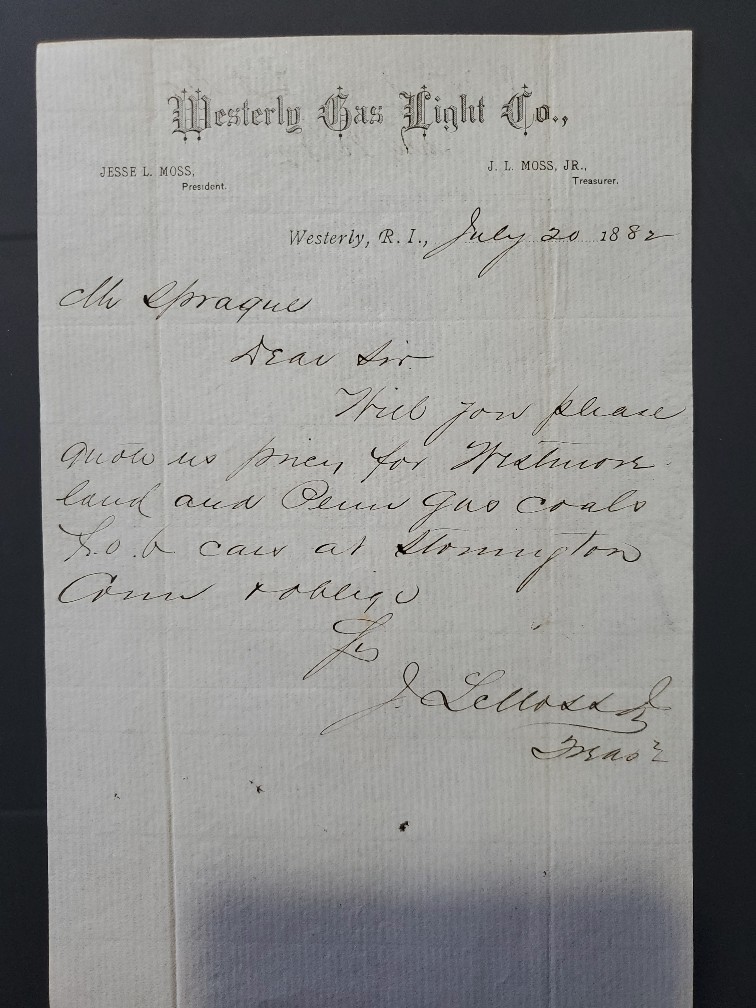 Westerly Gas Light Co.,
JESSE L. MOSS,
President.
J. L. MOSS, JR.,
Treasurer.
Westerly, R. I., July 20 1882
Mr Sprague
Dear Sir
Will you please
quote us prices for Westmore-
land and Penn Gas coals
F.o.b cars at Stonington
Conn & oblige
Yrs
J. L. Moss Jr
Treasr